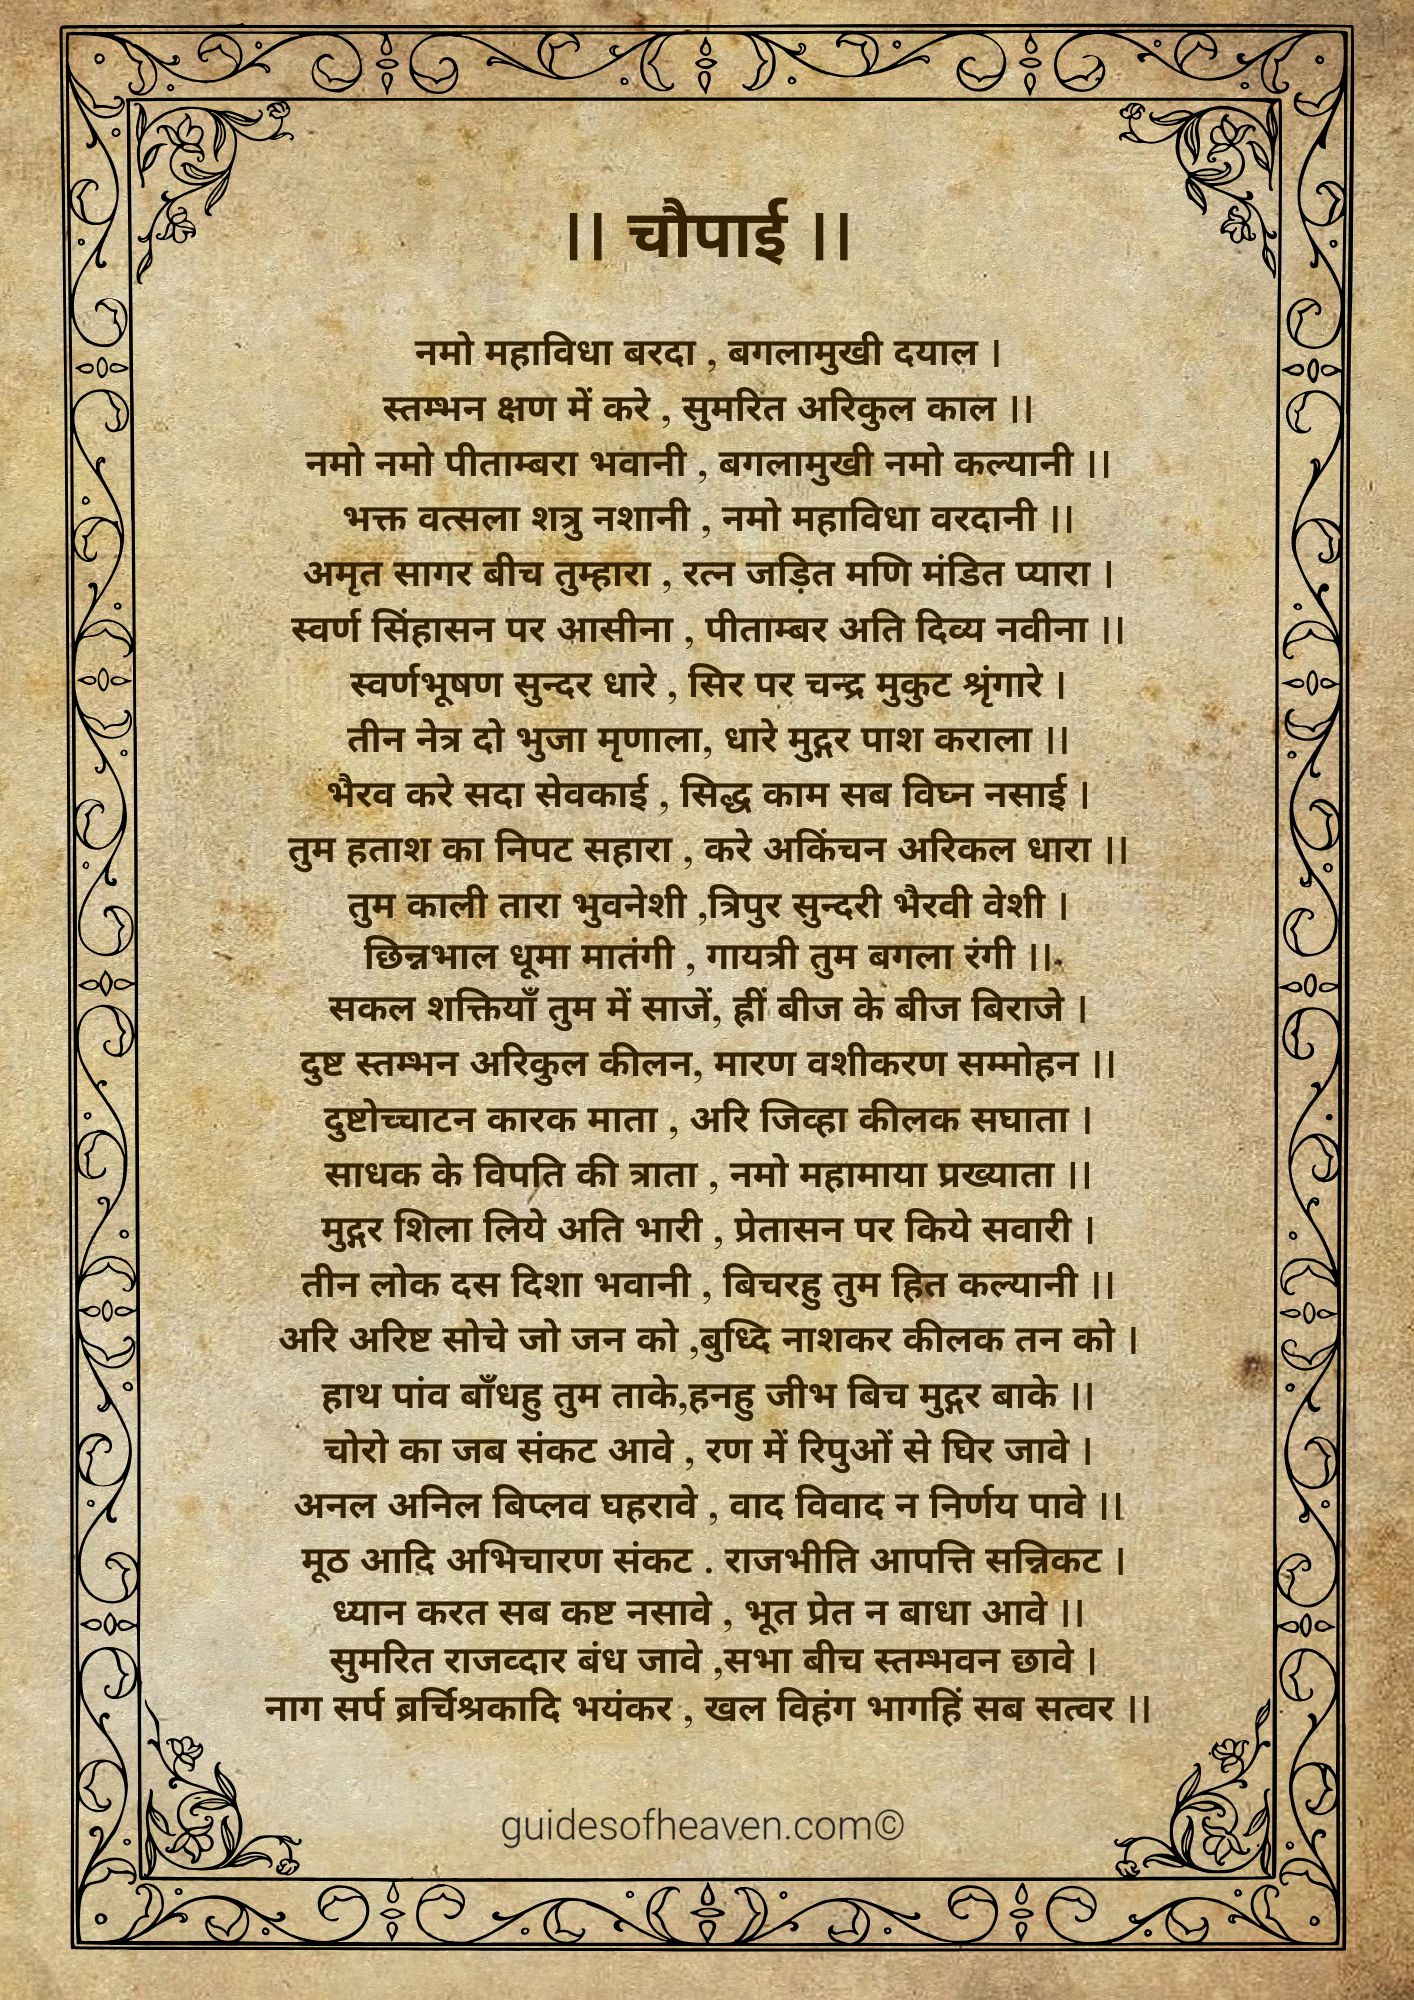 ।। चौपाई ।।
नमो महाविधा बरदा , बगलामुखी दयाल ।
स्तम्भन क्षण में करे , सुमरित अरिकुल काल ।।
नमो नमो पीताम्बरा भवानी , बगलामुखी नमो कल्यानी ।।
भक्त वत्सला शत्रु नशानी , नमो महाविधा वरदानी ।।
अमृत सागर बीच तुम्हारा , रत्न जड़ित मणि मंडित प्यारा ।
स्वर्ण सिंहासन पर आसीना , पीताम्बर अति दिव्य नवीना ।।
स्वर्णभूषण सुन्दर धारे , सिर पर चन्द्र मुकुट श्रृंगारे ।
तीन नेत्र दो भुजा मृणाला, धारे मुद्गर पाश कराला ।।
भैरव करे सदा सेवकाई , सिद्ध काम सब विघ्न नसाई ।
तुम हताश का निपट सहारा , करे अकिंचन अरिकल धारा ।।
तुम काली तारा भुवनेशी ,त्रिपुर सुन्दरी भैरवी वेशी ।
छिन्नभाल धूमा मातंगी , गायत्री तुम बगला रंगी ।।
सकल शक्तियाँ तुम में साजें, ह्रीं बीज के बीज बिराजे ।
दुष्ट स्तम्भन अरिकुल कीलन, मारण वशीकरण सम्मोहन ।।
दुष्टोच्चाटन कारक माता , अरि जिव्हा कीलक सघाता ।
साधक के विपति की त्राता , नमो महामाया प्रख्याता ।।
मुद्गर शिला लिये अति भारी , प्रेतासन पर किये सवारी ।
तीन लोक दस दिशा भवानी , बिचरहु तुम हित कल्यानी ।।
अरि अरिष्ट सोचे जो जन को ,बुध्दि नाशकर कीलक तन को ।
हाथ पांव बाँधहु तुम ताके,हनहु जीभ बिच मुद्गर बाके ।।
चोरो का जब संकट आवे , रण में रिपुओं से घिर जावे ।
अनल अनिल बिप्लव घहरावे , वाद विवाद न निर्णय पावे ।।
मूठ आदि अभिचारण संकट . राजभीति आपत्ति सन्निकट ।
ध्यान करत सब कष्ट नसावे , भूत प्रेत न बाधा आवे ।।
सुमरित राजव्दार बंध जावे ,सभा बीच स्तम्भवन छावे ।
नाग सर्प ब्रर्चिश्रकादि भयंकर , खल विहंग भागहिं सब सत्वर ।।
guidesofheaven.com©